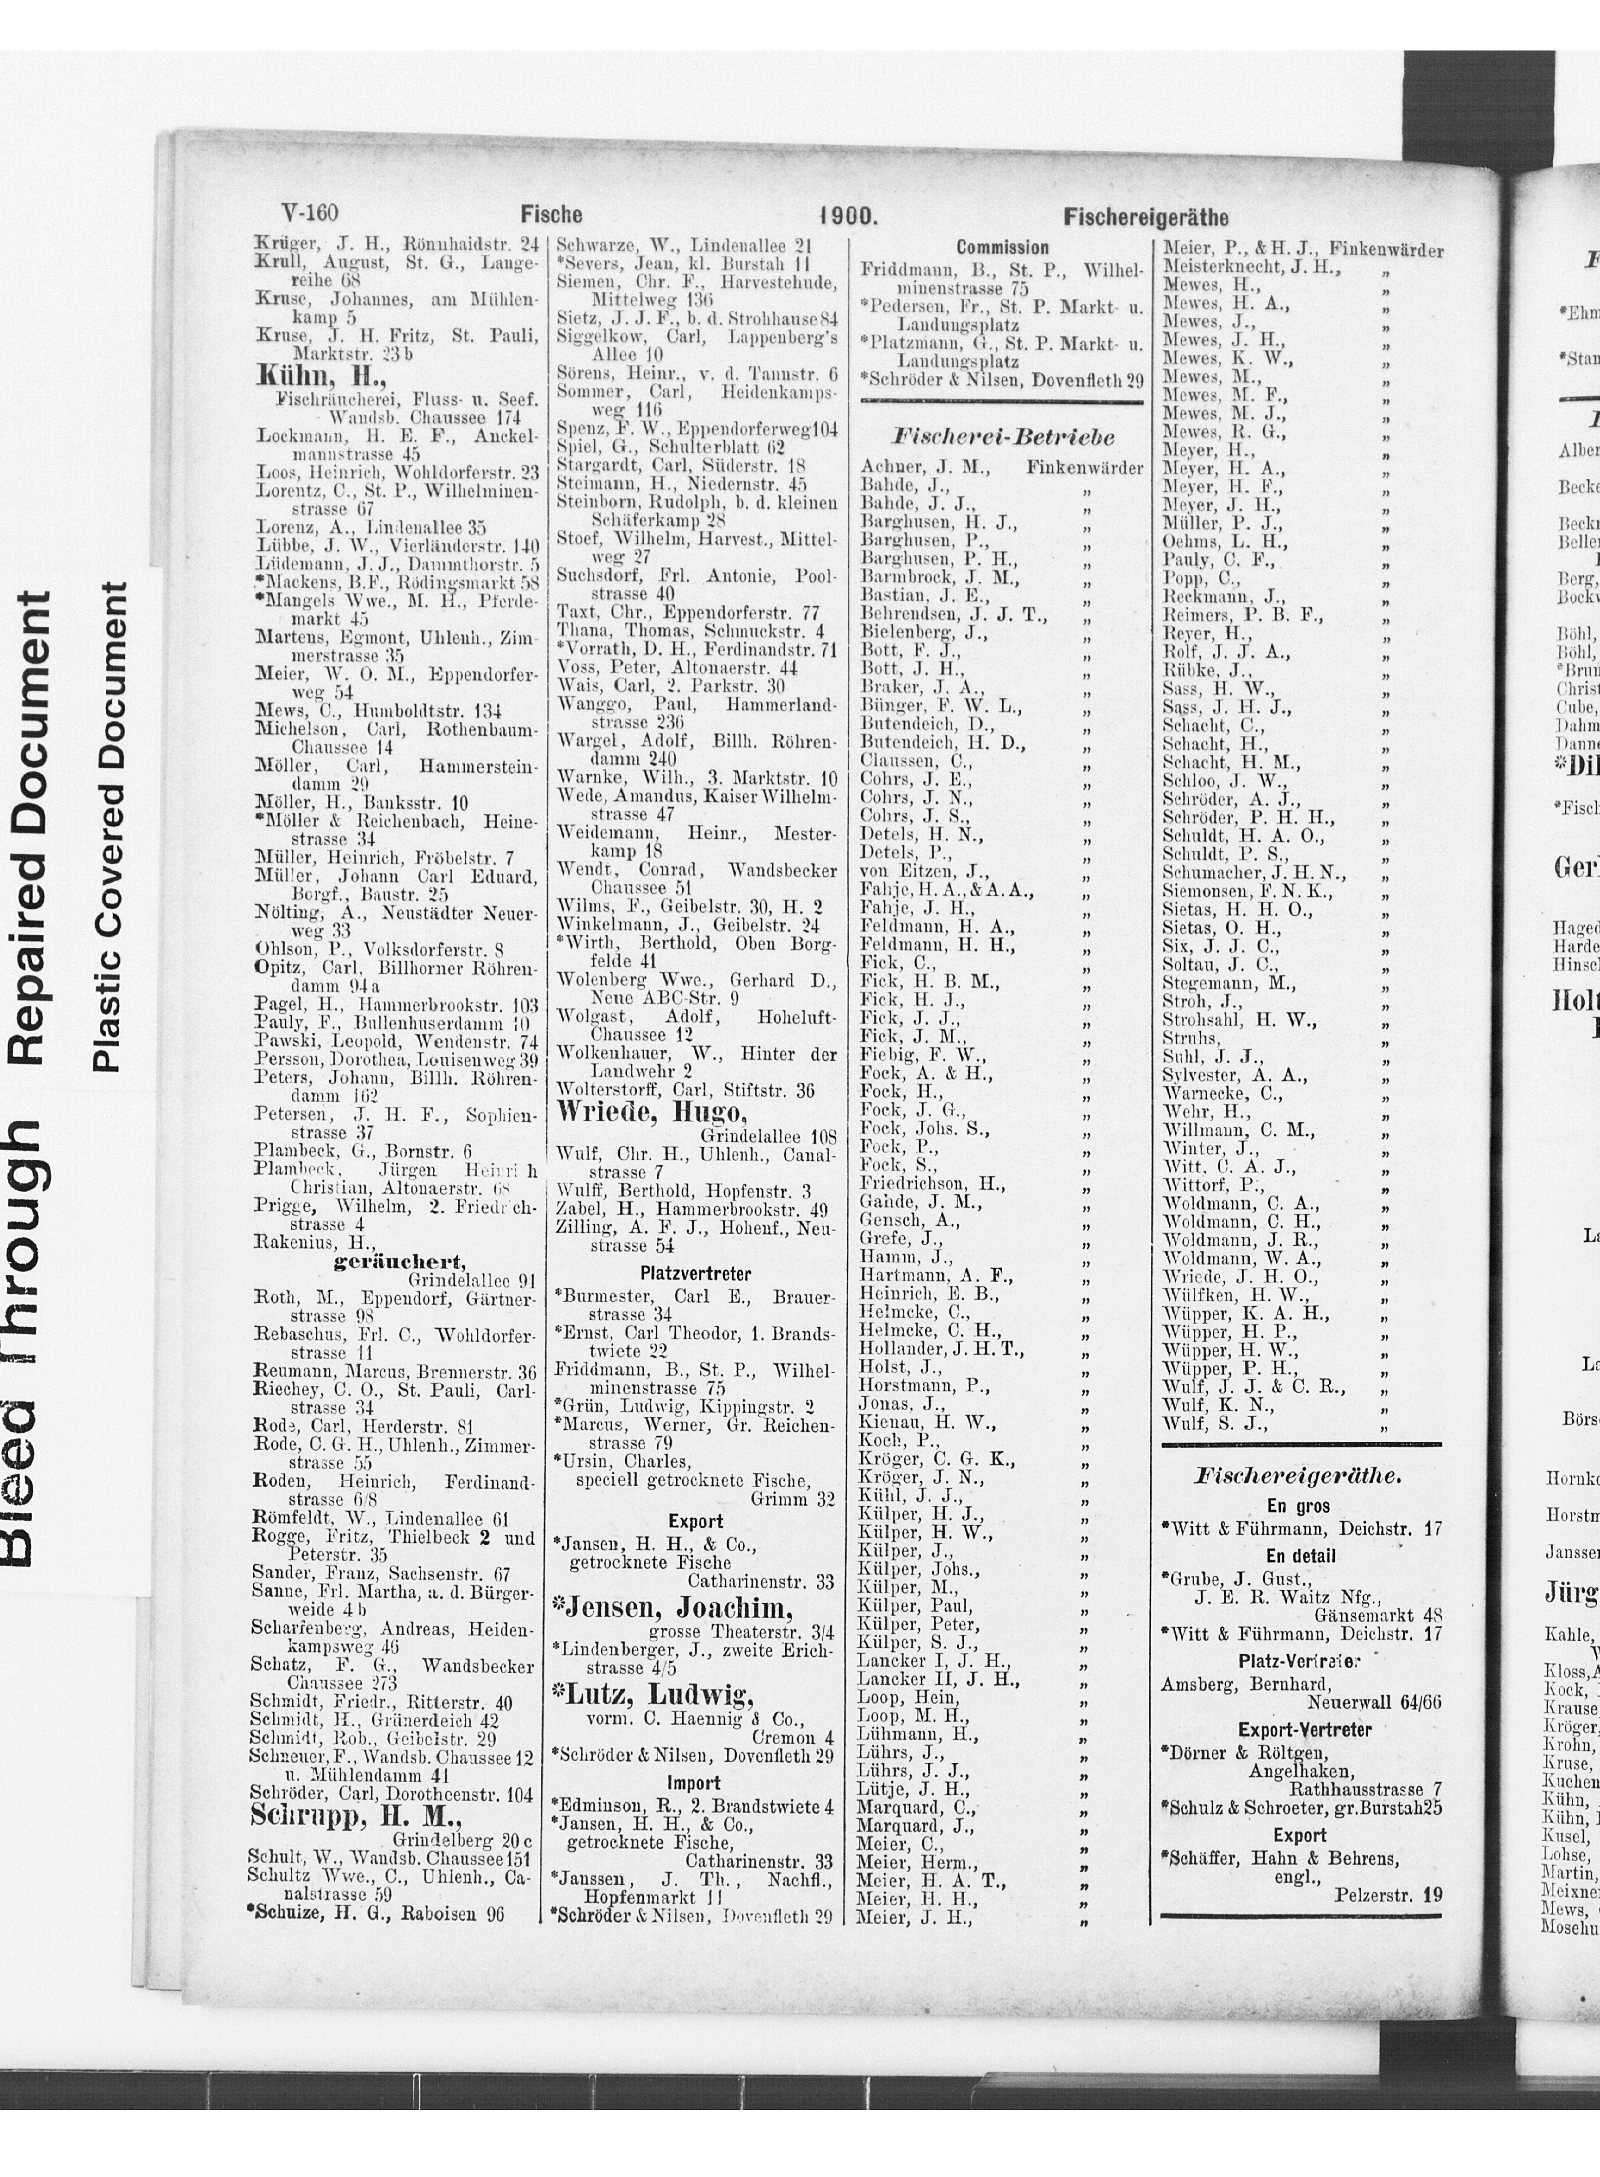 V-160 Fische 1900. Fischereigeräthe
Krüger, J. H., Rönnhaidstr. 24
Krull, August, St. G., Lange-
reihe 68
Kruse, Johannes, am Mühlen-
kamp 5
Kruse, J. H. Fritz, St. Pauli,
Marktstr. 23b
Kühn, H.,
Fischräucherei, Fluss- u. Seef.
Wandsb. Chaussee 174
Lockmann, H. E. F., Anckel-
mannstrasse 45
Loos, Heinrich, Wohldorferstr. 23
Lorentz, C., St. P., Wilhelminen-
strasse 67
Lorenz, A., Lindenallee 35
Lübbe, J. W., Vierländerstr. 140
Lüdemann, J. J., Dammthorstr. 5
*Mackens, B.F., Rödingsmarkt 58
*Mangels Wwe., M. H., Pferde-
markt 45
Martens, Egmont, Uhlenh., Zim-
merstrasse 35
Meier, W. O. M., Eppendorfer-
weg 54
Mews, C., Humboldtstr. 134
Michelson, Carl, Rothenbaum-
Chaussee 14
Möller, Carl, Hammerstein-
damm 29
Möller, H., Banksstr. 10
*Möller & Reichenbach, Heine-
strasse 34
Müller, Heinrich, Fröbelstr. 7
Müller, Johann Carl Eduard,
Borgf., Baustr. 25
Nölting, A., Neustädter Neuer-
weg 33
Ohlson, P., Volksdorferstr. 8
Opitz, Carl, Billhorner Röhren-
damm 94a
Pagel, H., Hammerbrookstr. 103
Pauly, F., Bullenhuserdamm 10
Pawski, Leopold, Wendenstr. 74
Persson, Dorothea, Louisenweg 39
Peters, Johann, Billh. Röhren-
damm 162
Petersen, J. H. F., Sophien-
strasse 37
Plambeck, G., Bornstr. 6
Plambeck, Jürgen Heinrich
Christian, Altonaerstr. 68
Prigge, Wilhelm, 2. Friedrich-
strasse 4
Rakenius, H.,
geräuchert,
Grindelallee 91
Roth, M., Eppendorf, Gärtner-
strasse 98
Rebaschus, Frl. C., Wohldorfer-
strasse 11
Reumann, Marcus, Brennerstr. 36
Riechey, C. O., St. Pauli, Carl-
strasse 34
Rode, Carl, Herderstr. 81
Rode, C. G. H., Uhlenh., Zimmer-
strasse 55
Roden, Heinrich, Ferdinand-
strasse 6/8
Römfeldt, W., Lindenallee 61
Rogge, Fritz, Thielbeck 2 und
Peterstr. 35
Sander, Franz, Sachsenstr. 67
Sanne, Frl. Martha, a. d. Bürger-
weide 4b
Scharfenberg, Andreas, Heiden-
kampsweg 46
Schatz, F. G., Wandsbecker
Chaussee 273
Schmidt, Friedr., Ritterstr. 40
Schmidt, H., Grünerdeich 42
Schmidt, Rob., Geibelstr. 29
Schneuer, F., Wandsb. Chaussee 12
u. Mühlendamm 41
Schröder, Carl, Dorotheenstr. 104
Schrupp, H. M.,
Grindelberg 20c
Schult, W., Wandsb. Chaussee 151
Schultz Wwe., C., Uhlenh., Ca-
nalstrasse 59
*Schulze, H. G., Raboisen 96
Schwarze, W., Lindenallee 21
*Severs, Jean, kl. Burstah 11
Siemen, Chr. F., Harvestehude,
Mittelweg 136
Sietz, J. J. F., b. d. Strohhause 84
Siggelkow, Carl, Lappenberg's
Allee 10
Sörens, Heinr., v. d. Tannstr. 6
Sommer, Carl, Heidenkamps-
weg 116
Spenz, F. W., Eppendorferweg104
Spiel, G., Schulterblatt 62
Stargardt, Carl, Süderstr. 18
Steimann, H., Niedernstr. 45
Steinborn, Rudolph, b. d. kleinen
Schäferkamp 28
Stoef, Wilhelm, Harvest., Mittel-
weg 27
Suchsdorf, Frl. Antonie, Pool-
strasse 40
Taxt, Chr., Eppendorferstr. 77
Thana, Thomas, Schmuckstr. 4
*Vorrath, D. H., Ferdinandstr. 71
Voss, Peter, Altonaerstr. 44
Wais, Carl, 2. Parkstr. 30
Wanggo, Paul, Hammerland-
strasse 236
Wargel, Adolf, Billh. Röhren-
damm 240
Warnke, Wilh., 3. Marktstr. 10
Wede, Amandus, Kaiser Wilhelm-
strasse 47
Weidemann, Heinr., Mester-
kamp 18
Wendt, Conrad, Wandsbecker
Chaussee 51
Wilms, F., Geibelstr. 30, H. 2
Winkelmann, J., Geibelstr. 24
*Wirth, Berthold, Oben Borg-
felde 41
Wolenberg Wwe., Gerhard D.,
Neue ABC-Str. 9
Wolgast, Adolf, Hoheluft-
Chaussee 12
Wolkenhauer, W., Hinter der
Landwehr 2
Wolterstorff, Carl, Stiftstr. 36
Wriede, Hugo,
Grindelallee 108
Wulf, Chr. H., Uhlenh., Canal-
strasse 7
Wulff, Berthold, Hopfenstr. 3
Zabel, H., Hammerbrookstr. 49
Zilling, A. F. J., Hohenf., Neu-
strasse 54
Platzvertreter
*Burmester, Carl E., Brauer-
strasse 34
*Ernst, Carl Theodor, 1. Brands-
twiete 22
Friddmann, B., St. P., Wilhel-
minenstrasse 75
*Grün, Ludwig, Kippingstr. 2
*Marcus, Werner, Gr. Reichen-
strasse 79
*Ursin, Charles,
speciell getrocknete Fische,
Grimm 32
Export
*Jansen, H. H., & Co.,
getrocknete Fische
Catharinenstr. 33
*Jensen, Joachim,
grosse Theaterstr. 3/4
*Lindenberger, J., zweite Erich-
strasse 4/5
*Lutz, Ludwig,
vorm. C. Haennig & Co.,
Cremon 4
*Schröder & Nilsen, Dovenfleth 29
Import
*Edminson, R., 2. Brandstwiete 4
*Jansen, H. H., & Co.,
getrocknete Fische,
Catharinenstr. 33
*Janssen, J. Th., Nachfl.,
Hopfenmarkt 11
*Schröder & Nilsen, Dovenfleth 29
Commission
Friddmann, B., St. P., Wilhel-
minenstrasse 75
*Pedersen, Fr., St. P. Markt- u.
Landungsplatz
*Platzmann, G., St. P. Markt- u.
Landungsplatz
*Schröder & Nilsen, Dovenfleth 29
Fischerei-Betriebe
Achner, J. M., Finkenwärder
Bahde, J., „
Bahde, J. J., „
Barghusen, H. J., „
Barghusen, P., „
Barghusen, P. H., „
Barmbrock, J. M., „
Bastian, J. E., „
Behrendsen, J. J. T., „
Bielenberg, J., „
Bott, F. J., „
Bott, J. H., „
Braker, J. A., „
Bünger, F. W. L., „
Butendeich, D., „
Butendeich, H. D., „
Claussen, C., „
Cohrs, J. E., „
Cohrs, J. N., „
Cohrs, J. S., „
Detels, H. N., „
Detels, P., „
von Eitzen, J., „
Fahje, H. A., & A. A., „
Fahje, J. H., „
Feldmann, H. A., „
Feldmann, H. H., „
Fick, C., „
Fick, H. B. M., „
Fick, H. J., „
Fick, J. J., „
Fick, J. M., „
Fiebig, F. W., „
Fock, A. & H., „
Fock, H., „
Fock, J. G., „
Fock, Johs. S., „
Fock, P., „
Fock, S., „
Friedrichson, H., „
Gahde, J. M., „
Gensch, A., „
Grefe, J., „
Hamm, J., „
Hartmann, A. F., „
Heinrich, E. B., „
Helmcke, C., „
Helmcke, C. H., „
Hollander, J. H. T., „
Holst, J., „
Horstmann, P., „
Jonas, J., „
Kienau, H. W., „
Koch, P., „
Kröger, C. G. K., „
Kröger, J. N., „
Kühl, J. J., „
Külper, H. J., „
Külper, H. W., „
Külper, J., „
Külper, Johs., „
Külper, M., „
Külper, Paul, „
Külper, Peter, „
Külper, S. J., „
Lancker I, J. H., „
Lancker II, J. H., „
Loop, Hein, „
Loop, M. H., „
Lühmann, H., „
Lührs, J., „
Lührs, J. J., „
Lütje, J. H., „
Marquard, C., „
Marquard, J., „
Meier, C., „
Meier, Herm., „
Meier, H. A. T., „
Meier, H. H., „
Meier, J. H., „
Meier, P., & H. J., Finkenwärder
Meisterknecht, J. H., „
Mewes, H., „
Mewes, H. A., „
Mewes, J., „
Mewes, J. H., „
Mewes, K. W., „
Mewes, M., „
Mewes, M. F., „
Mewes, M. J., „
Mewes, R. G., „
Meyer, H., „
Meyer, H. A., „
Meyer, H. F., „
Meyer, J. H., „
Müller, P. J., „
Oehms, L. H., „
Pauly, C. F., „
Popp, C., „
Reckmann, J., „
Reimers, P. B. F., „
Reyer, H., „
Rolf, J. J. A., „
Rübke, J., „
Sass, H. W., „
Sass, J. H. J., „
Schacht, C., „
Schacht, H., „
Schacht, H. M., „
Schloo, J. W., „
Schröder, A. J., „
Schröder, P. H. H., „
Schuldt, H. A. O., „
Schuldt, P. S., „
Schumacher, J. H. N., „
Siemonsen, F. N. K., „
Sietas, H. H. O., „
Sietas, O. H., „
Six, J. J. C., „
Soltau, J. C., „
Stegemann, M., „
Stroh, J., „
Strohsahl, H. W., „
Struhs, „
Suhl, J. J., „
Sylvester, A. A., „
Warnecke, C., „
Wehr, H., „
Willmann, C. M., „
Winter, J., „
Witt, C. A. J., „
Wittorf, P., „
Woldmann, C. A., „
Woldmann, C. H., „
Woldmann, J. R., „
Woldmann, W. A., „
Wriede, J. H. O., „
Wülfken, H. W., „
Wüpper, K. A. H., „
Wüpper, H. P., „
Wüpper, H. W., „
Wüpper, P. H., „
Wulf, J. J. & C. R., „
Wulf, K. N., „
Wulf, S. J., „
Fischereigeräthe.
En gros
*Witt & Führmann, Deichstr. 17
En detail
*Grube, J. Gust.,
J. E. R. Waitz Nfg.,
Gänsemarkt 48
*Witt & Führmann, Deichstr. 17
Platz-Vertreter
Amsberg, Bernhard,
Neuerwall 64/66
Export-Vertreter
*Dörner & Röltgen,
Angelhaken,
Rathhausstrasse 7
*Schulz & Schroeter, gr. Burstah25
Export
*Schäffer, Hahn & Behrens,
engl.,
Pelzerstr. 19
Bleed Through Repaired Document
Plastic Covered Document